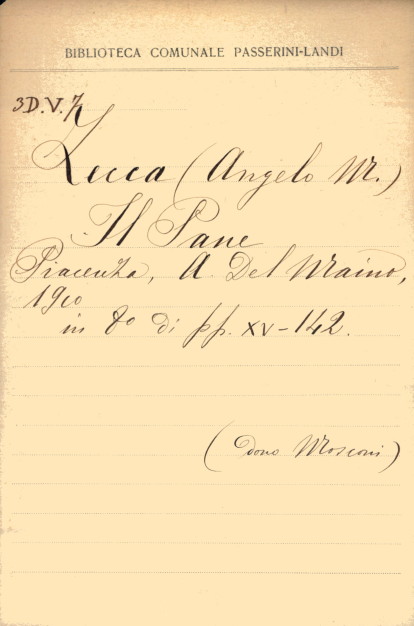 BIBLIOTECA COMUNALE PASSERINI-LANDI
3D.V.7
Zucca (Angelo M.)
Il Pane
Piacenza, A. Del Maino,
1910
in 8º di pp. XV-142.
(dono Mosconi)